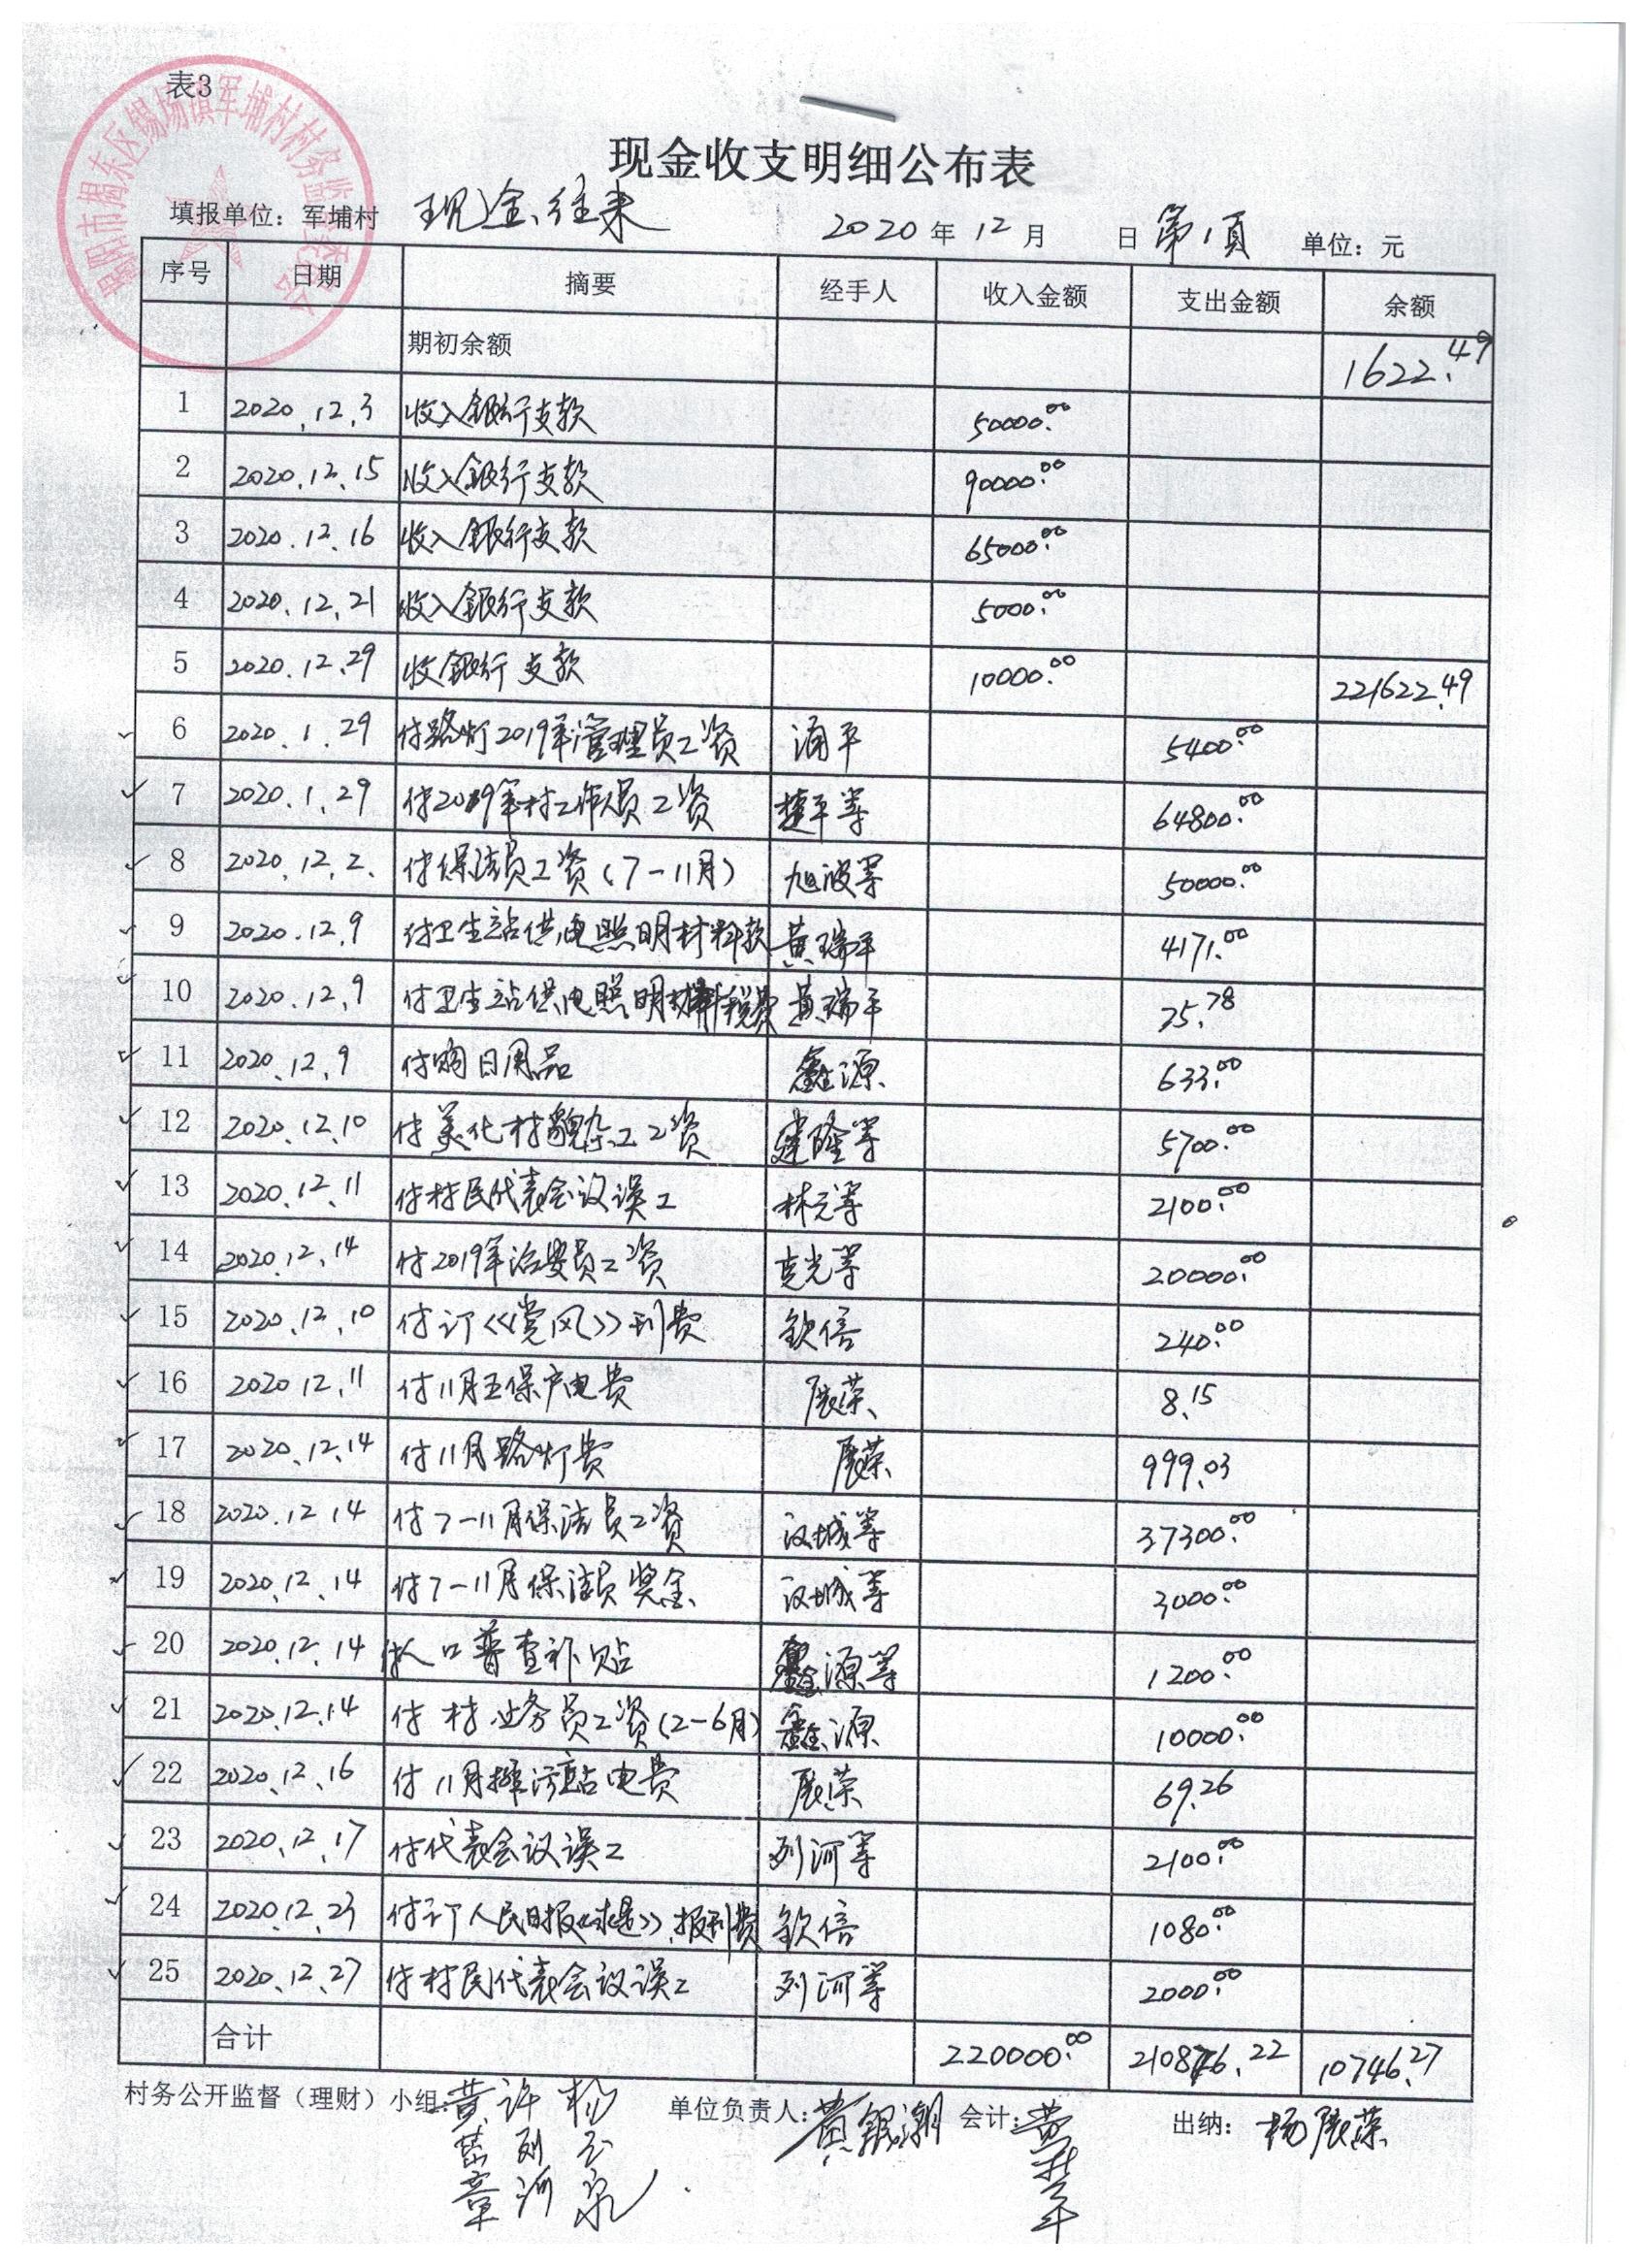 表3
揭阳市揭东区锡场镇军埔村村务监督委员会
现金收支明细公布表
填报单位：军埔村 现金往来 2020年12月 日 第1页 单位：元
序号 日期 摘要 经手人 收入金额 支出金额 余额
期初余额 1622.49
1 2020.12.3 收入银行支款 50000.00
2 2020.12.15 收入银行支款 90000.00
3 2020.12.16 收入银行支款 65000.00
4 2020.12.21 收入银行支款 5000.00
5 2020.12.29 收银行支款 10000.00 221622.49
6 2020.1.29 付路灯2019年管理员工资 涌平 5400.00
7 2020.1.29 付2019年村工作人员工资 楚平等 64800.00
8 2020.12.2. 付保洁员工资(7-11月) 旭波等 50000.00
9 2020.12.9 付卫生站供电照明材料款 黄瑞平 4171.00
10 2020.12.9 付卫生站供电照明材料税费 黄瑞平 75.78
11 2020.12.9 付购日用品 鑫源 633.00
12 2020.12.10 付美化村貌杂工工资 建隆等 5700.00
13 2020.12.11 付村民代表会议误工 林元等 2100.00
14 2020.12.14 付2019年治安员工资 克光等 20000.00
15 2020.12.10 付订《党风》刊费 钦倍 240.00
16 2020 12.11 付11月五保户电费 展荣 8.15
17 2020.12.14 付11月路灯费 展荣 999.03
18 2020.12 14 付7-11月保洁员工资 汉城等 37300.00
19 2020.12.14 付7-11月保洁员奖金 汉城等 3000.00
20 2020.12.14 付人口普查补贴 鑫源等 1200.00
21 2020.12.14 付村业务员工资(2-6月) 鑫源 10000.00
22 2020.12.16 付11月排污站电费 展荣 69.26
23 2020.12.17 付代表会议误工 列河等 2100.00
24 2020.12.23 付订人民日报《求是》报刊费 钦倍 1080.00
25 2020.12.27 付村民代表会议误工 列河等 2000.00
合计 220000.00 210876.22 10746.27
村务公开监督（理财）小组： 黄 许 单位负责人：黄锐潮 会计：黄 出纳：杨展荣
列
河